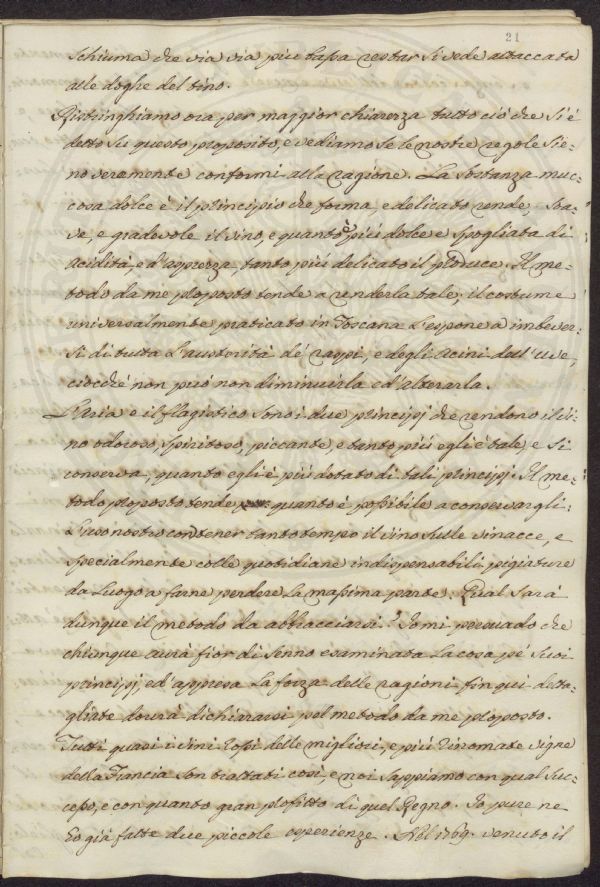 21
schiuma che via via più bassa restar si vede attaccata
alle doghe del tino.
Ristringhiamo ora per maggior chiarezza tutto ciò che si è
detto su questo proposito, e vediamo se le nostre regole sie=
no veramente conformi alla ragione. La sostanza muc=
cosa dolce è il principio che forma, e delicato rende, soa=
ve, e gradevole il vino, e quanto è più dolce e spogliata di
acidità, e d'asprezza, tanto più delicato il produce. Il me=
todo da me proposto tende a renderla tale, il costume
universalmente praticato in Toscana l'espone a imbever=
si di tutta l'austerità de' raspi, e degli acini dell'uve,
ciocché non può non diminuirla ed alterarla.
L'aria e il flogistico sono i due principj che rendono il vi=
no odoroso, spiritoso, piccante, e tanto più egli è tale, e si
conserva, quanto egli è più dotato di tali principj. Il me=
todo proposto tende quanto è possibile a conservargli.
L'uso nostro con tener tanto tempo il vino sulle vinacce, e
specialmente colle quotidiane indispensabili pigiature
da luogo a farne perdere la massima parte. Qual sarà
dunque il metodo da abbracciarsi? Io mi persuado che
chiunque avrà fior di senno esaminata la cosa pe' suoi
principj, ed appresa la forza delle ragioni fin qui detta=
gliate dovrà dichiararsi pel metodo da me proposto.
Tutti quasi i vini rossi delle migliori, e più rinomate vigne
della Francia son trattati così, e noi sappiamo con qual suc=
cesso, e con quanto gran profitto di quel Regno. Io pure ne
ho già fatte due piccole esperienze. Nel 1769. venuto il